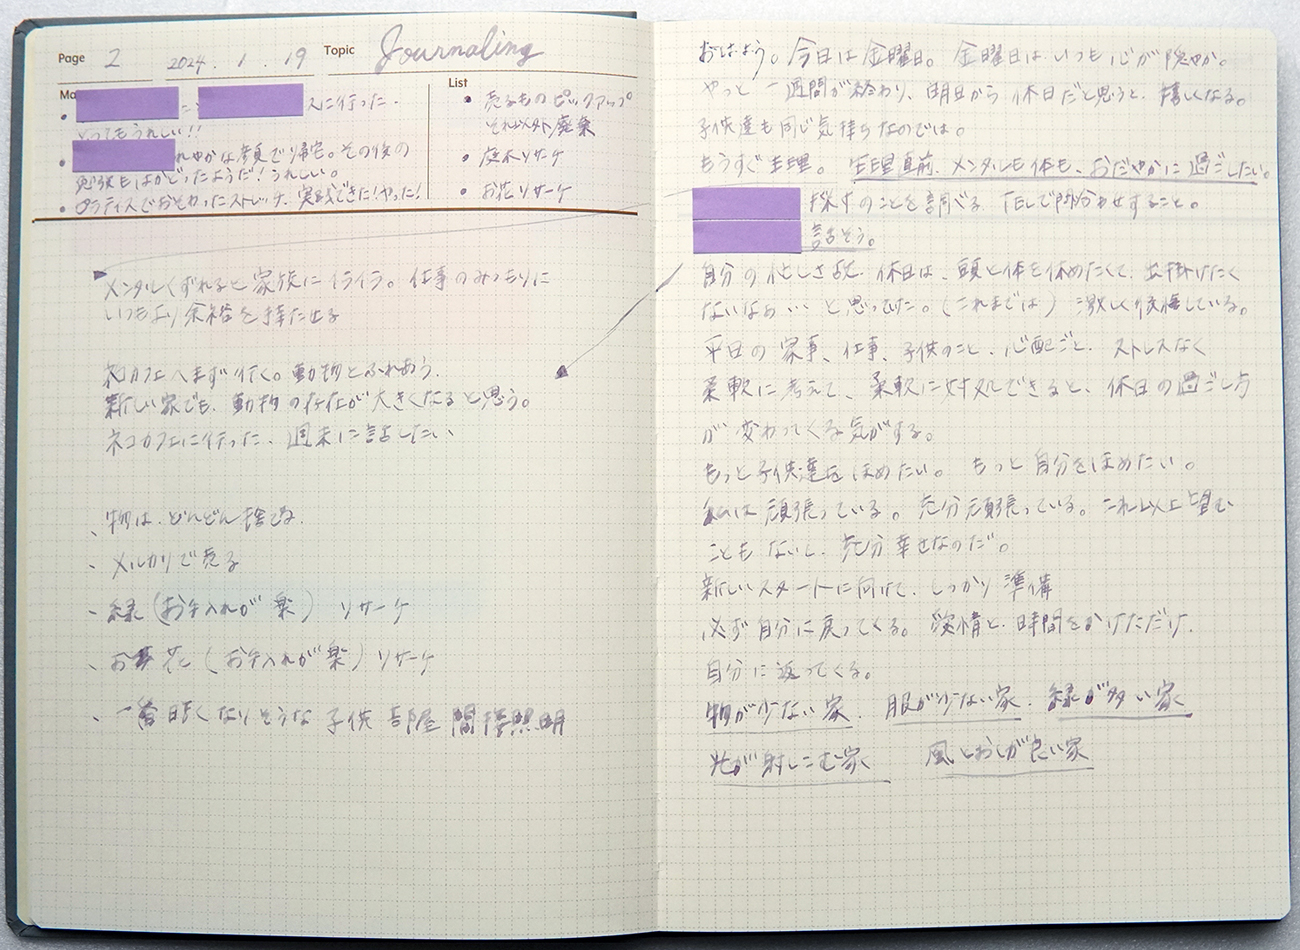 Page 2 2024. 1. 19 Topic Journaling
スに行った.
とってもうれしい!!
れやかな顔で帰宅。その後の
勉強もはかどったようだ!うれしい。
ピラティスでおそわったストレッチ、実践できた!やった!
List
売るものピックアップ
それ以外廃棄
庭木リサーチ
お花リサーチ
メンタルくずれると家族にイライラ。仕事のみつもりに
いつもより余裕を持たせる
ネコカフェへまず行く。動物とふれあう.
新しい家でも、動物の存在が大きくなると思う。
ネコカフェに行った、週末に話したい
物は、どんどん捨てる.
メルカリで売る
緑(お手入れが楽) リサーチ
お花(お手入れが楽)リサーチ
一番暗くなりそうな子供部屋間接照明
おはよう。今日は金曜日。金曜日はいつも心が穏やか。
やっと一週間が終わり、明日から休日だと思うと、嬉しくなる。
子供達も同じ気持ちなのでは。
もうすぐ生理。生理直前、メンタルも体も、おだやかに過ごしたい。
探すのことを調べる TELで問合わせすること。
話そう。
自分の忙しさなど、休日は、頭と体を休めたくて、出掛けたく
ないなぁ… と思ってた。(これまでは) 激しく後悔している。
平日の家事、仕事、子供のこと、心配ごと、ストレスなく
柔軟に考えて、柔軟に対処できると、休日の過ごし方
が変わってくる気がする。
もっと子供達をほめたい。もっと自分をほめたい。
私は頑張っている。充分頑張っている。これ以上望む
こともないし、充分幸せなのだ。
新しいスタートに向けて、しっかり準備
必ず自分に戻ってくる。愛情と、時間をかけただけ、
自分に返ってくる。
物が少ない家. 服が少ない家. 緑が多い家
光が射しこむ家 風とおしが良い家